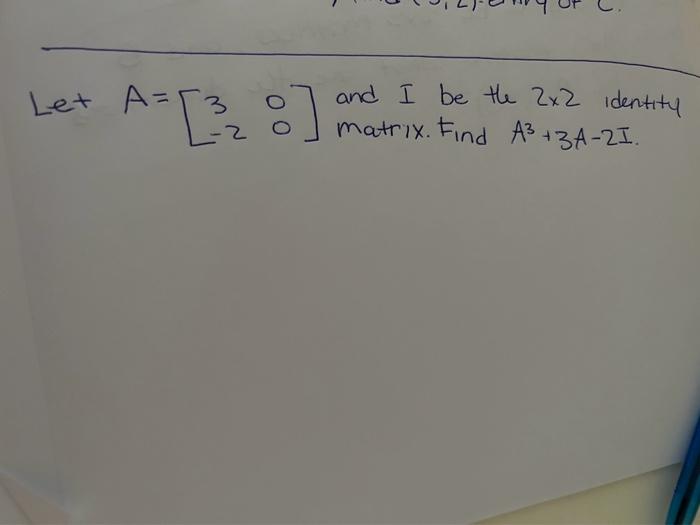 of C.
Let A = [3 0 -2 0] and I be the 2x2 identity
matrix. Find A³ + 3A - 2I.